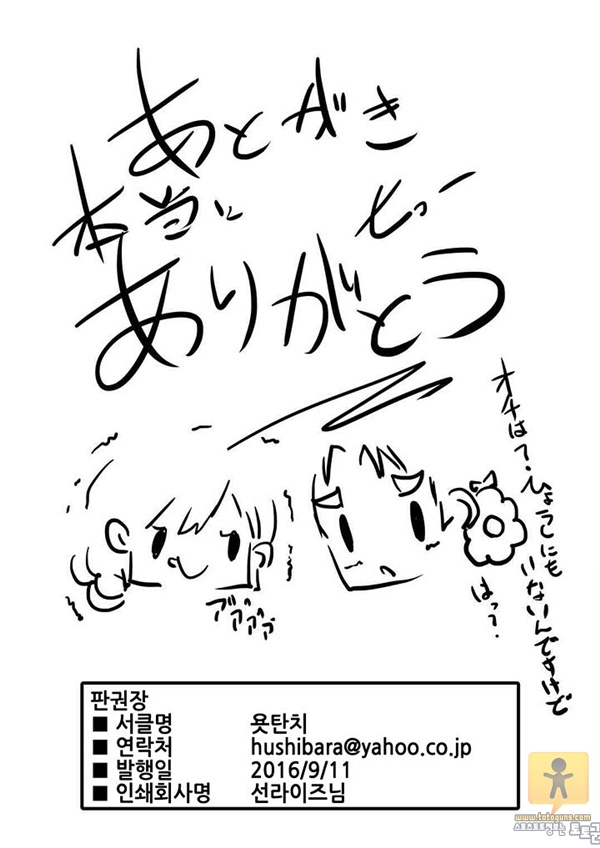 あとがき
本当に
ありがとう
オチは?ひょうにも
いないんですけど
はっ?
판권장
■ 서클명 욧탄치
■ 연락처 hushibara@yahoo.co.jp
■ 발행일 2016/9/11
■ 인쇄회사명 선라이즈님
www.totoguns.com